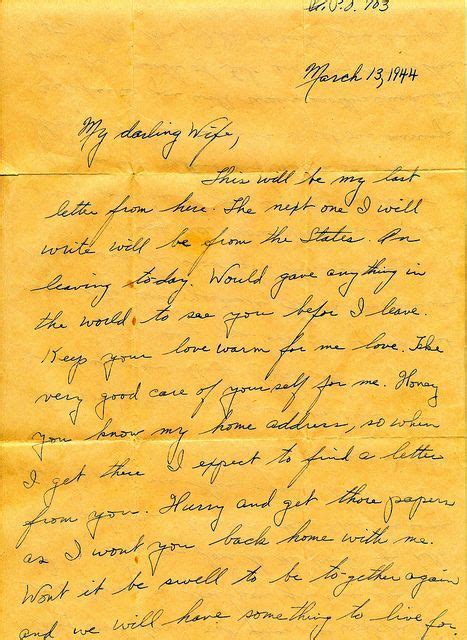 A.P.O. 703
March 13, 1944
My darling Wife,
This will be my last
letter from here. The next one I will
write will be from the States. Am
leaving to-day. Would gave anything in
the world to see you befor I leave.
Keep your love warm for me love. Take
very good care of your self for me. Honey
you know my home address, so when
I get there I expect to find a letter
from you. Hurry and get those papers
as I wont you back home with me.
Wont it be swell to be to-gether again
and we will have something to live for